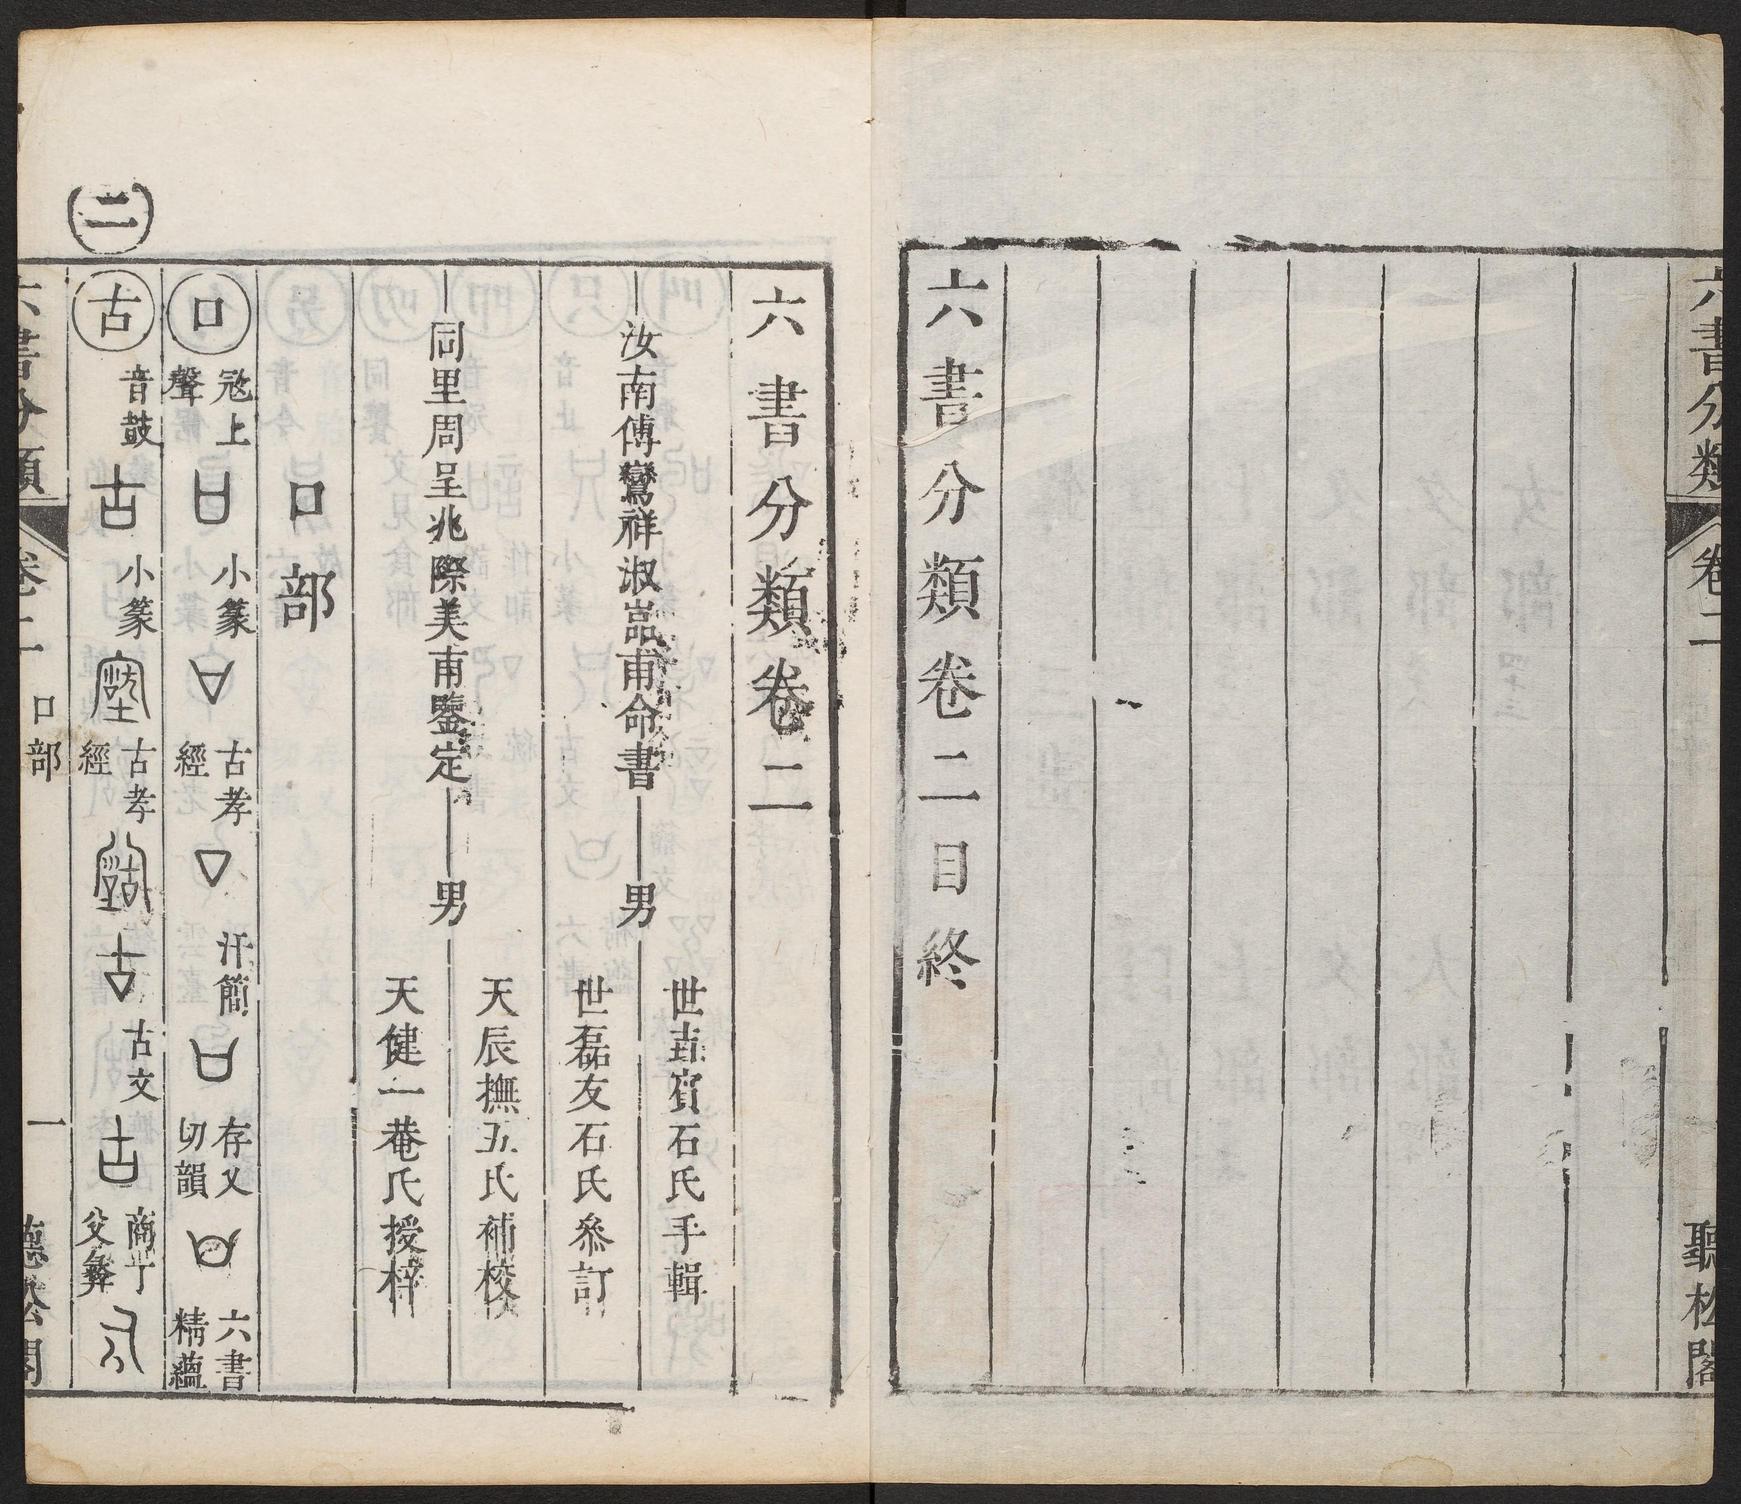 六書分類 卷二 聽松閣
六書分類卷二目終
六書分類卷二
汝南傅鸞祥淑嵓甫命書 男 世垚賓石氏手輯
世磊友石氏叅訂
同里周呈兆際美甫鑒定 男 天辰撫五氏補校
天健一菴氏授梓
口部
口 冦上聲 小篆 古孝經 汗簡 存乂切韻 六書精蘊
古 音鼓 小篆 古孝經 古文 商 父彝
(二)
六書分類 卷二 口部 一 聽松閣